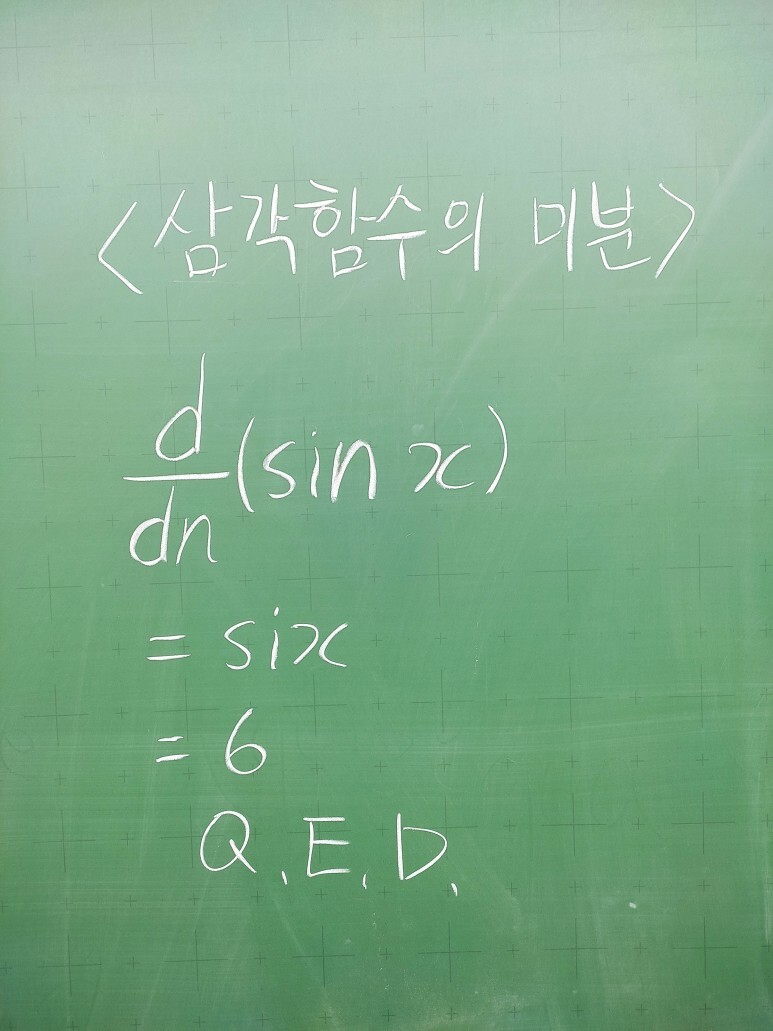 <삼각함수의 미분>
d
dn
(sin x)
= six
= 6
Q.E.D.